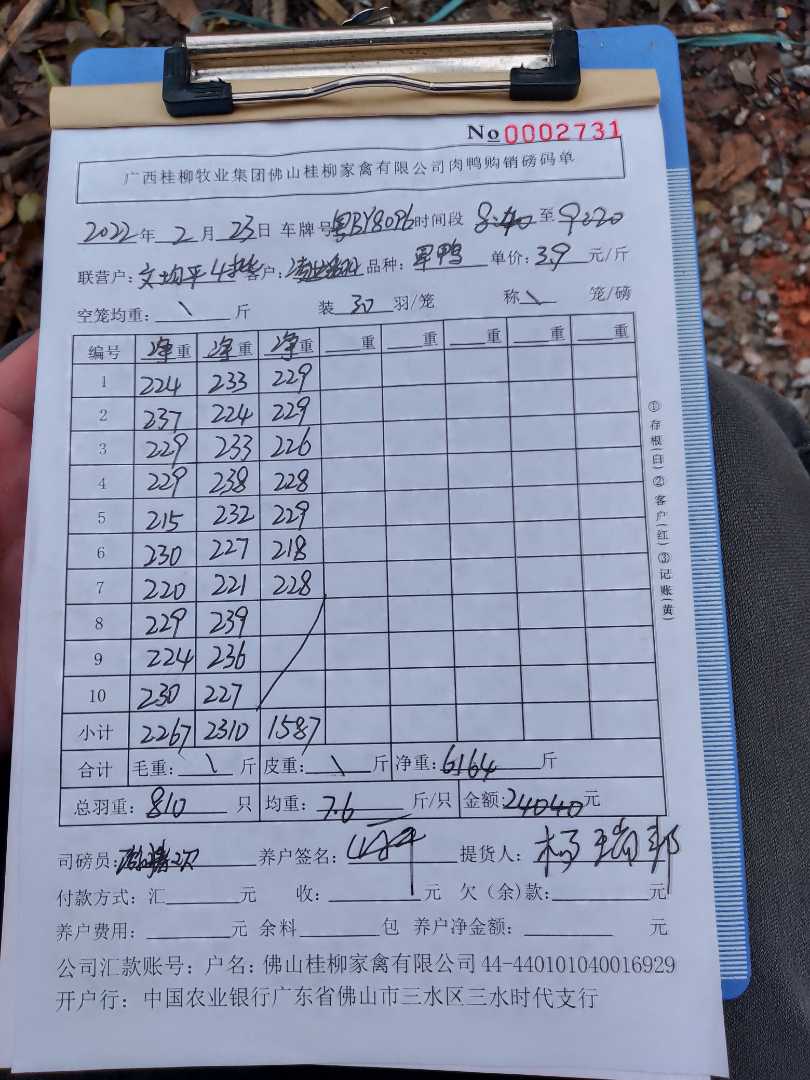 No 0002731
广西桂柳牧业集团佛山桂柳家禽有限公司肉鸭购销磅码单
2022年 2月 23日 车牌号粤BY80P6时间段 8:40至9:20
联营户:文均平4批 客户: 品种: 单价:3.9 元/斤
空笼均重:\ 斤 装 30 羽/笼 称\ 笼/磅
编号 净重 净重 净重 重 重 重 重 重
1 224 233 229
2 237 224 229
3 229 233 226
4 229 238 228
5 215 232 229
6 230 227 218
7 220 221 228
8 229 239
9 224 236
10 230 227
小计 2267 2310 1587
合计 毛重:\ 斤 皮重:\ 斤 净重:6164 斤
总羽重:810 只 均重:7.6 斤/只 金额:24040元
司磅员: 养户签名: 提货人:杨瑞郭
付款方式:汇 元 收: 元 欠(余)款: 元
养户费用: 元 余料 包 养户净金额: 元
公司汇款账号:户名:佛山桂柳家禽有限公司44-440101040016929
开户行:中国农业银行广东省佛山市三水区三水时代支行
①存根(白)②客户(红)③记账(黄)